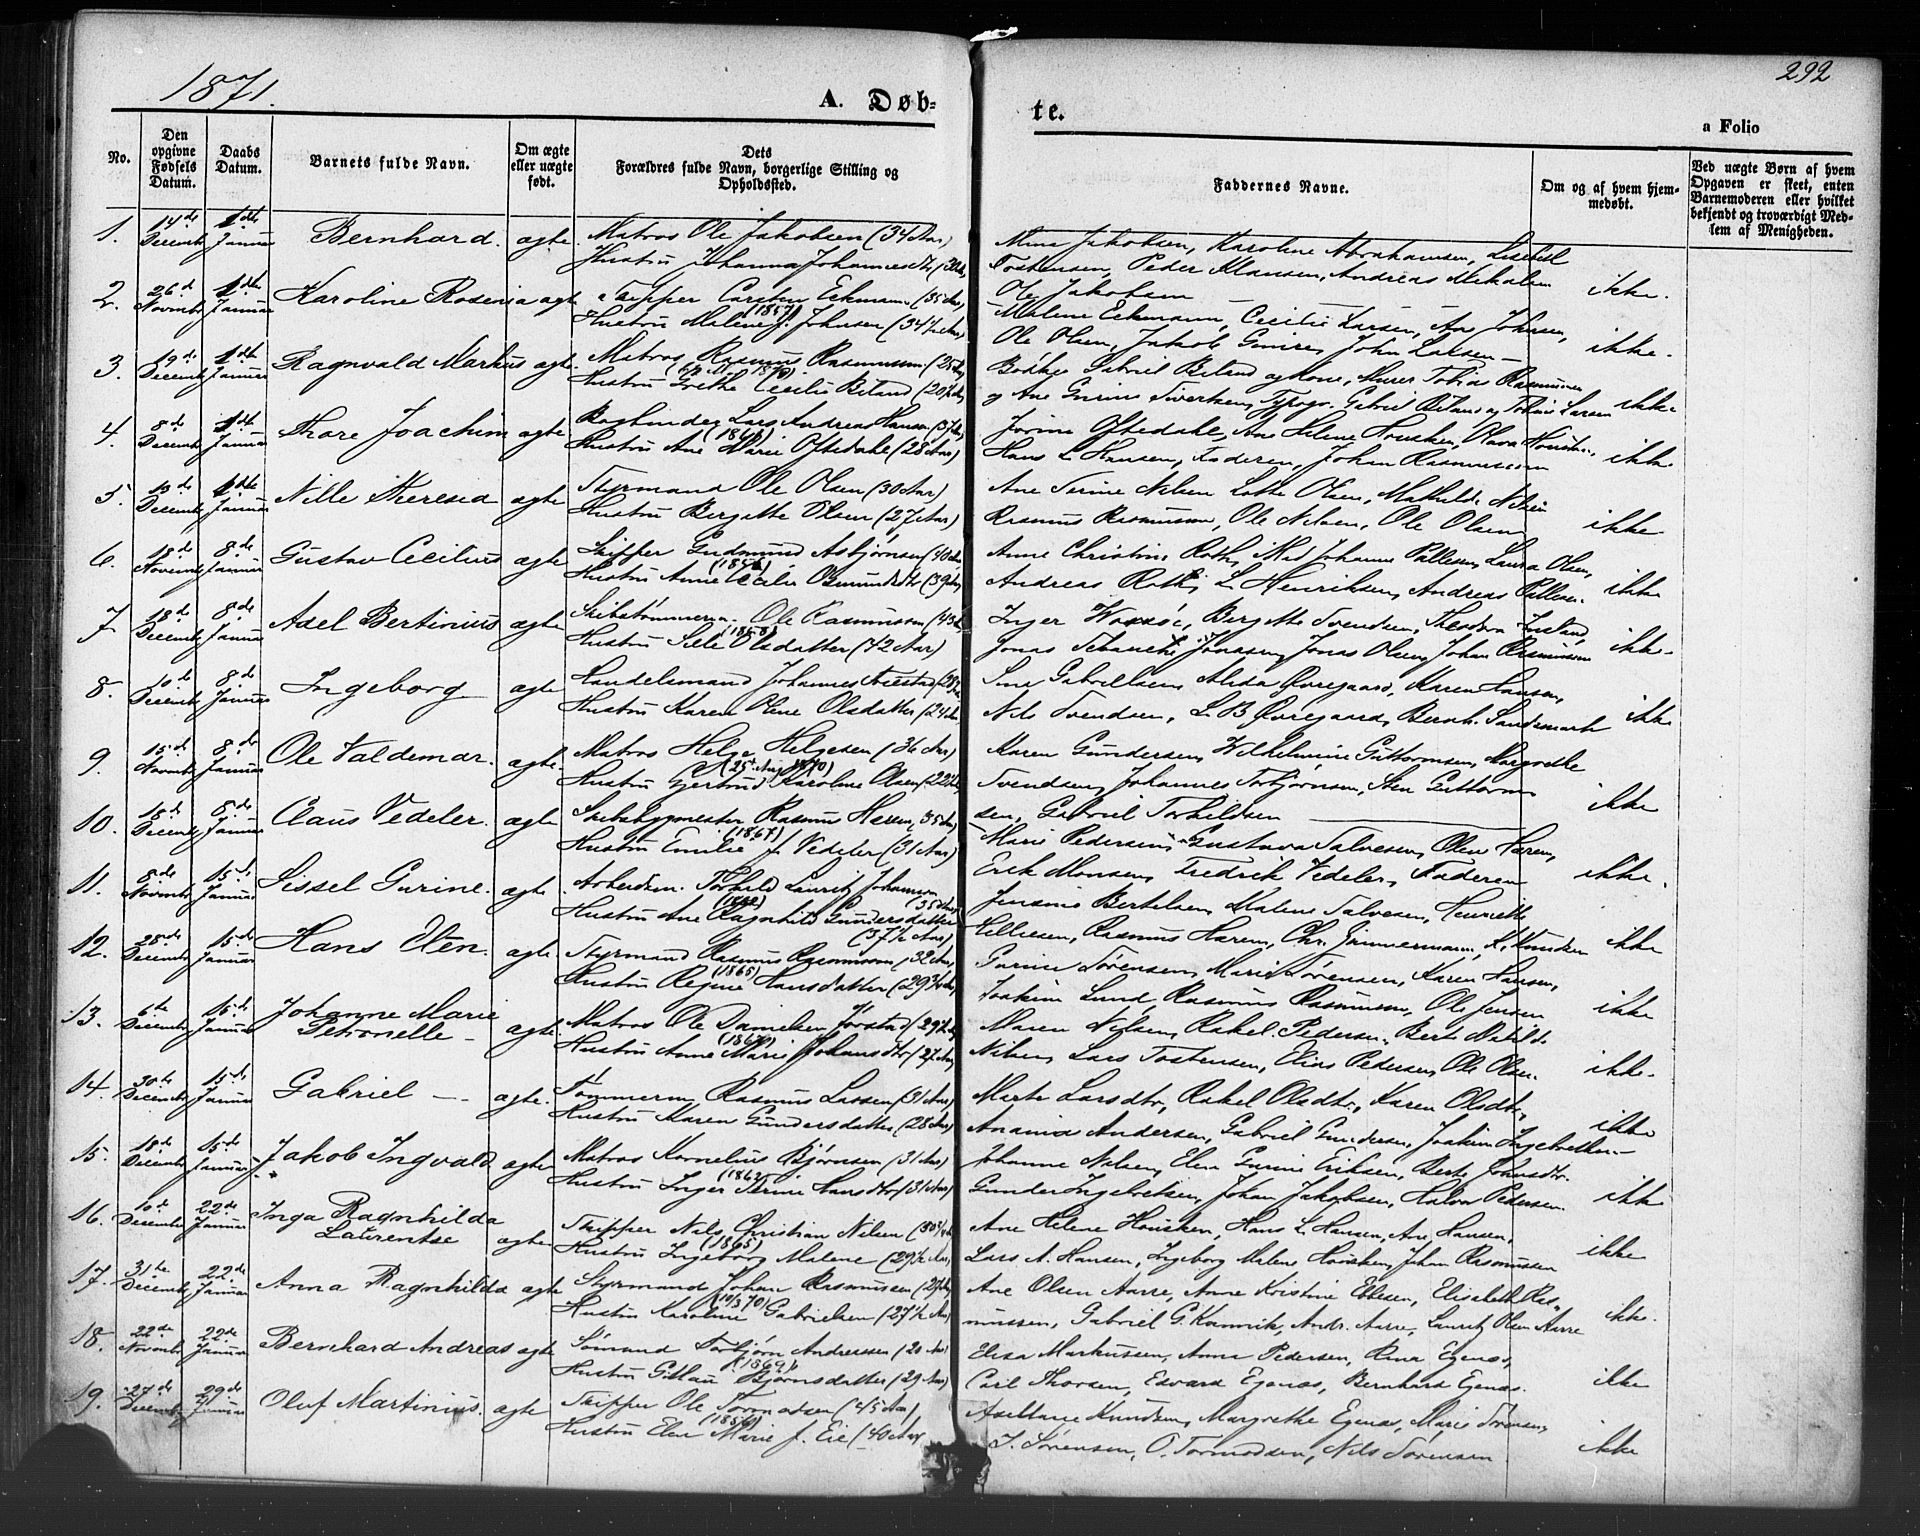 1871.
292
A. Døb-
te.
a Folio
No.
Den opgivne Fødsels Datum.
Daabs Datum.
Barnets fulde Navn.
Om ægte eller uægte født.
Dets Forældres fulde Navn, borgerlige Stilling og Opholdssted.
Faddernes Navne.
Om og af hvem hjemmedøbt.
Ved uægte Børn af hvem Opgaven er skeet, enten Barnemoderen eller hvilket bekjendt og troværdigt Medlem af Menigheden.
1. 14de Decemb 1ste Januar Bernhard. ægte Matros Ole Jakobsen (34 Aar)
Hustru Johanna Johannesdtr
Mina Jakobsen, Karoline Abrahamsen, Lisebet
Tostensen, Peder Klausen, Andreas Mikalsen
Ole Jakobsen
ikke.
2. 26d Novemb 1ste Januar Karoline Rosenia ægte Skipper Carsten Eckmann (35 Aar)
(1857)
Hustru Malene J. Johnsen (34½ Aar)
Malene Eckmann, Cecilie Larsen, Ane Johnsen,
Ole Olsen, Jakob John Larsen
ikke.
3. 19de Decemb 1ste Januar Ragnvald Markus ægte Matros Rasmus Rasmussen (25 Aar)
Hustru Grethe Cecilie Beland
Gabriel Beland og Kone, Murer Tobias Rasmussen
og Ane Gurine Sivertsen, Typogr. Gabriel Beland og Tobias Larsen
ikke
4. 8de Decemb 1ste Januar Thore Joachim ægte Bogbinder Lars Andreas Hansen (37 Aar)
Hustru Ane Marie Oftedahl (28 Aar)
Jorine Oftedahl, Ane Helene Housken, Olava Housken,
Hans L Hansen, Faderen, Johan Rasmussen
ikke
5. Decemb 1ste Januar Nille Theresia ægte Styrmand Ole Olsen (30 Aar)
Hustru Bergitte Olsen (27 Aar)
Ane Serine Nilsen Lotte Olsen, Mathilde Nilsen
Rasmus Rasmussen, Ole Nilsen, Ole Olsen
ikke
6. 18de Novemb 8de Januar Gustav Cecilius ægte Skipper Gudmund Asbjørnsen (40 Aar)
Hustru Anne Cecilie Osmundsdtr (39 Aar)
Anne Christine Roth, Mad Johanne Pallesen, Laura Olsen,
Andreas Roth, L Henriksen, Andreas Pallesen.
ikke
7 18de Decemb 8de Januar Axel Bertinius ægte Skibstømmerm. Ole Rasmussen (43 Aar)
(1858)
Hustru Sille Olsdatter (42 Aar)
Inger Bergitte Svendsen, Theodora
Jonas Jonassen, Jonas Olsen, Johan Rasmussen
ikke
8. 10de Decemb 8de Januar Ingeborg ægte Handelsmand Johannes
Hustru Karen Olene Olsdatter (24 Aar)
Sina Gabrielsen, Alida Øvregaard, Karen Hansen,
Nils Svendsen, L B Øvregaard, Bernh. Sandsmark
ikke
9. 15de Novemb 8de Januar Ole Valdemar. ægte Matros Helge Helgesen (36 Aar)
(25t Aug 1870)
Hustru Gjertrud Karoline Olsen
Karen Gundersen, Wilhelmine Guttormsen, Margrethe
Svendsen, Johannes Torbjørnsen, Sten Guttorm-
sen, Gabriel Torkildsen
ikke
10. 18de Decemb 8de Januar Claus Vedeler. ægte Skibsbygmester Rasmus Haren (35 Aar)
(1867)
Hustru Emilie f. Vedeler (31 Aar)
Marie Pedersen, Gustava Salvesen, Olene Haren,
Erik Monsen, Fredrik Vedeler, Faderen
ikke.
11. 8de Novemb 15de Januar Sissel Gurine. ægte Arbeidsm. Torkild Lauritz Johannesen
(35 Aar)
Hustru Ane Ragnhild Gundersdatter
(37½ Aar)
Jensine Bertelsen, Malene Salvesen, Henriette
Elliesen, Rasmus Haren, Chr. Zimmermann, K. Knudsen
ikke
12. 28de Decemb 15de Januar Hans Eten. ægte Styrmand Rasmus Rasmussen (32 Aar)
(1865)
Hustru Regine Hansdatter (29¾ Aar)
Gurine Sørensen, Marie Sørensen, Karen Hansen,
Joakim Lund, Rasmus Rasmussen, Ole Jensen
ikke
13. 6te Decemb 15de Januar Johanne Marie
Petronelle - ægte Matros Ole Danielsen Jørstad (29½ Aar)
Hustru Anne Marie Johansdtr (27 Aar)
Maren Nilsen, Rakel Pedersen, Berte Matilde
Nilsen, Lars Tostensen, Elias Pedersen, Ole Olsen.
ikke.
14. 30te Decemb 15de Januar Gabriel - ægte Tømmerm Rasmus Larsen (31 Aar)
Hustru Maren Gundersdatter (28 Aar)
Marte Larsdtr, Rakel Olsdtr., Karen Olsdtr,
Anania Andersen, Gabriel Gundersen, Joakim Ingebretsen
ikke
15. 18de Decemb 15de Januar Jakob Ingvald ægte Matros Kornelius Bjørnsen (31 Aar)
(1862)
Hustru Inger Serine Hansdtr (31 Aar)
Johanne Nilsen, Elen Gurine Eriksen, Berte Johnsdtr.
Gunder Ingebretsen, Johan Jakobsen, Halvor Pedersen.
ikke
16. 10de Decemb 22de Januar Inga Ragnhilda
Laurentse ægte Skipper Nils Christian Nilsen
(1865)
Hustru Ingeborg Malene (29½ Aar)
Ane Helene Housken, Hans L Hansen, Ane Hansen,
Lars A. Hansen, Ingeborg Malene Housken, Johan Rasmussen
ikke
17. 31te Decemb 22de Januar Anna Ragnhilda ægte Styrmand Johan Rasmussen
(10/3 70)
Hustru Karoline Gabrielsen (27½ Aar)
Ane Olsen Aarre, Anne Kristine Ebbesen, Elisabeth Ras-
mussen, Gabriel G. Kannik, Andr. Aarre, Lauritz Olsen Aarre
ikke.
18. 22de Novemb 22de Januar Bernhard Andreas ægte Sømand Torbjørn Andreassen
(1869)
Hustru Bjørnsdatter (29 Aar)
Elisa Markussen, Anna Pedersen, Rina Egenæs,
Carl Thorsen, Edvard Egenæs, Bernhard Egenæs.
ikke
19. 27de Decemb 29de Januar Oluf Martinius. ægte Skipper Ole Tormodsen (45 Aar)
(1856)
Hustru Elen Marie f. Eie (40 Aar)
Knudsen, Margrethe Egenæs, Marie Sørensen,
J. Sørensen, O. Tormodsen, Nils Sørensen
ikke